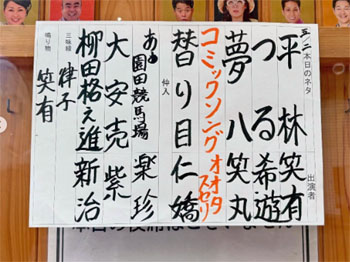 本日のネタ 出演者
平林 笑有
つる 希遊
夢八 笑丸
コミックソング オオタスセリ
替り目 仁嬌
仲入
あゝ園田競馬場 楽珍
大安売 紫
柳田格之進 新治
三味線 律子
鳴り物 笑有